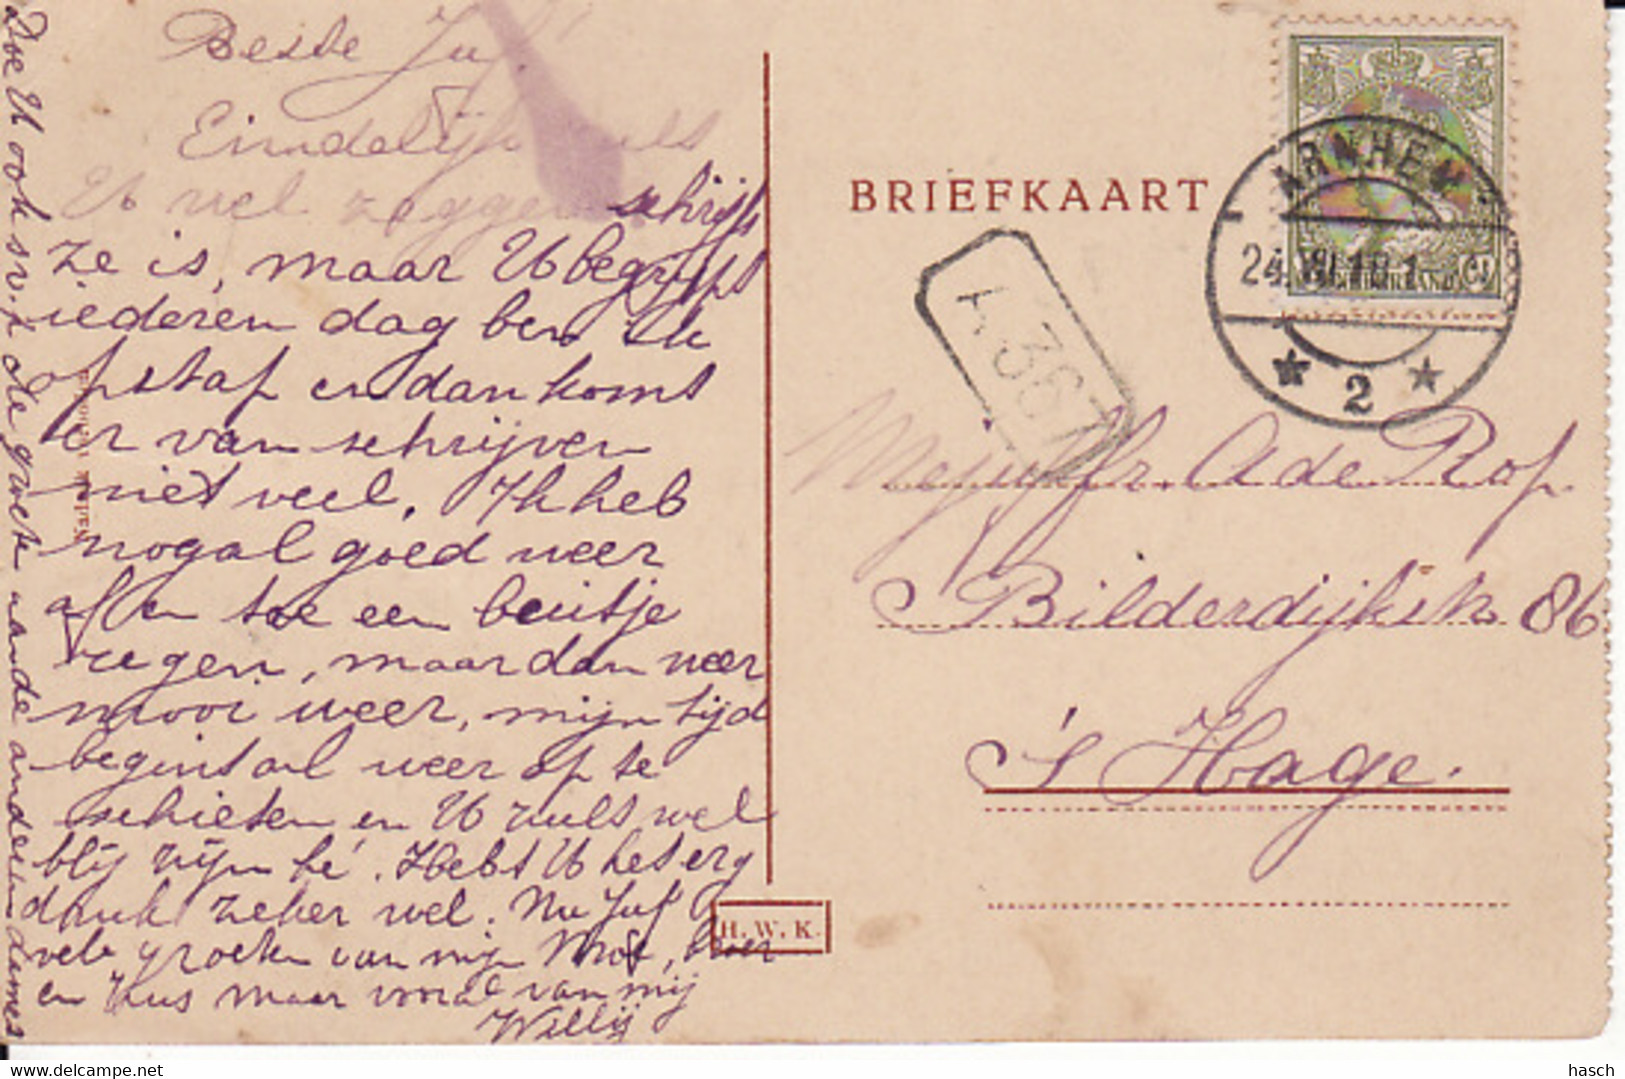 Beste Juf!
Eindelijk zult
U wel zeggen schrijft
ze is, maar U begrijpt
iederen dag ben ik
opstap en dan komt
er van schrijven
niet veel. Ik heb
nogal goed weer
af en toe een beutje
regen, maar dan weer
mooi weer, mijn tijd
begint al weer op te
schieten en U zult wel
blij zijn hè. Hebt U het erg
druk zeker wel. Nu Juf
vele groeten van mijn Moe, broer
en Zus maar vooral van mij
Willij
Doe U ook s.v.p. de groeten aan de andere dames
BRIEFKAART
ARNHEM
2
A 367
Mejuffr. A de Rop.
Bilderdijkstr. 86
's Hage.
H.W.K.
hasch